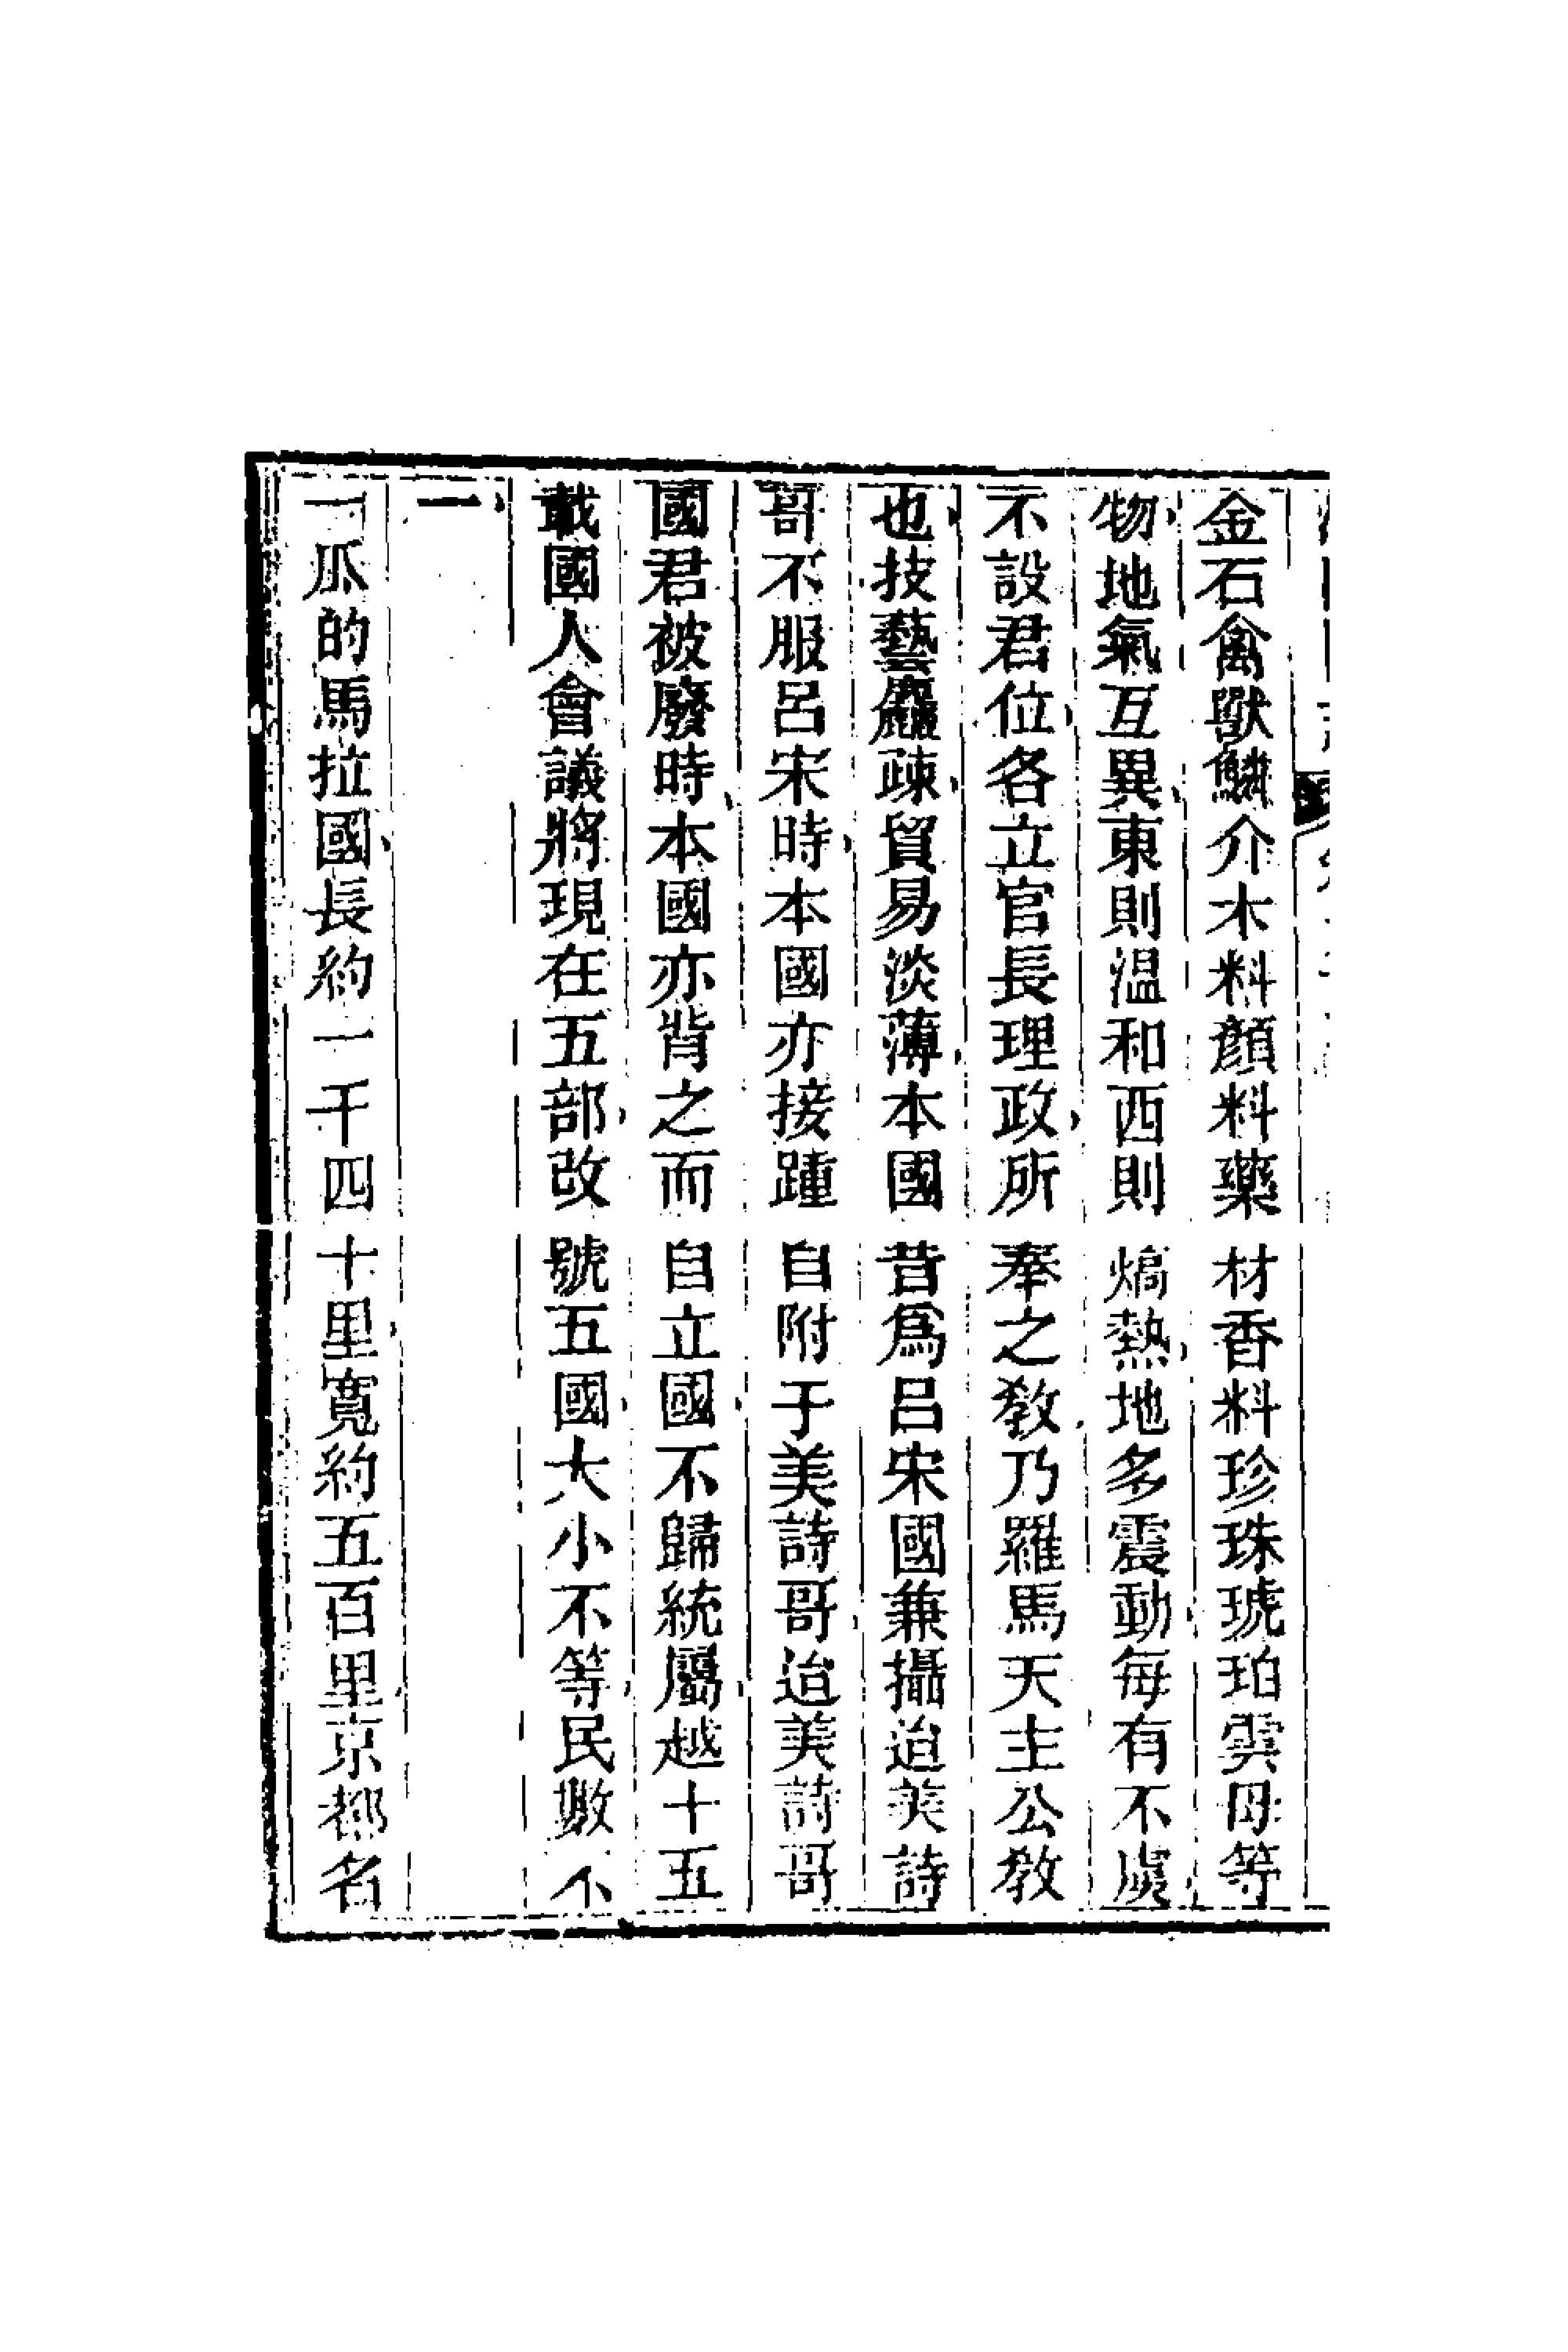 金石禽獸鱗介木料顏料藥材香料珍珠琥珀雲母等
物地氣互異東則温和西則熇熱地多震動每有不虞
不設君位各立官長理政所奉之教乃羅馬天主公教
也技藝麤疎貿易淡薄本國昔爲呂宋國兼攝迨美詩
哥不服呂宋時本國亦接踵自附于美詩哥迨美詩哥
國君被廢時本國亦背之而自立國不歸統屬越十五
載國人會議將現在五部改號五國大小不等民數不
一
一瓜的馬拉國長約一千四十里寬約五百里京都名